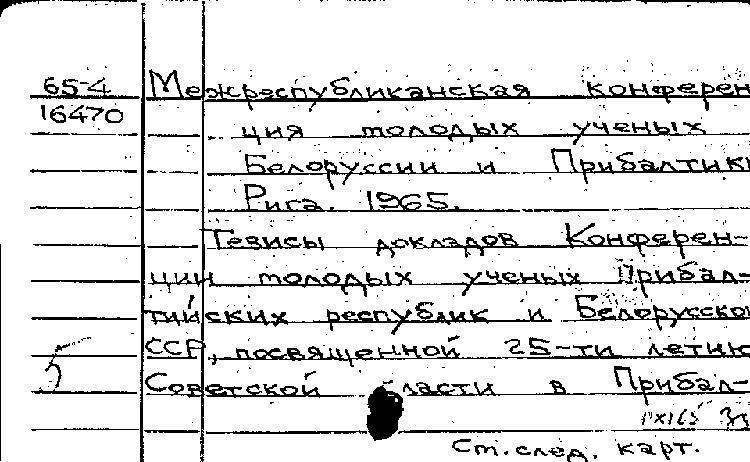 65-4 Межреспубликанская конферен
16470
ция молодых ученых
Белоруссии и Прибалтики
Рига. 1965.
Тезисы докладов Конферен-
ции молодых ученых Прибал-
тийских республик и Белорусско
ССР, посвященной 25-ти летию
5
Советской власти в Прибал-
Ст. след. карт.